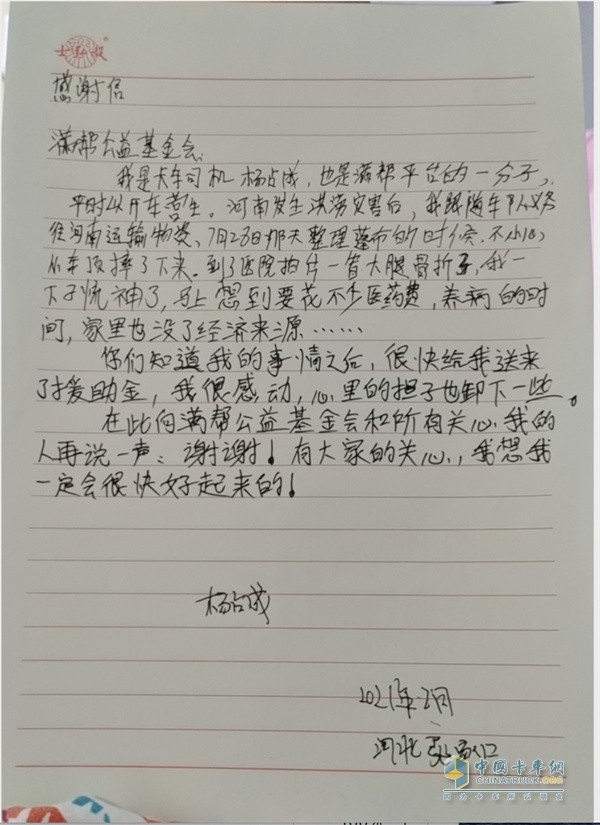 感谢信
满帮公益基金会
我是卡车司机 杨占成，也是满帮平台的一分子，
平时以开车营生。河南发生洪涝灾害后，我跟随车队义务
往河南运输物资，7月28日那天整理蓬布的时候，不小心
从车顶摔了下来。到了医院拍片一看大腿骨折了，我一
下子慌神了，马上想到要花不少医药费，养病的时
间，家里也没了经济来源……
你们知道我的事情之后，很快给我送来
了援助金，我很感动，心里的担子也卸下一些。
在此向满帮公益基金会和所有关心我的
人再说一声：谢谢！有大家的关心，我想我
一定会很快好起来的！
杨占成
2021年2月
河北
中国卡车网
CHINATRUCK.ORG